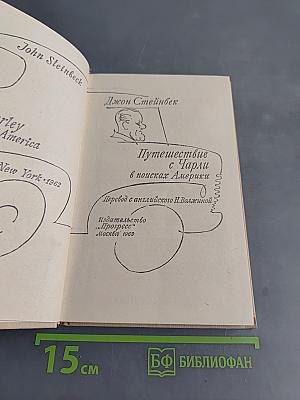 John Steinbeck
America
New York·1962
Джон Стейнбек
Путешествие
с Чарли
в поисках Америки
Перевод с английского Н. Волжиной
Издательство
„Прогресс“
Москва 1965
15 см
БФ БИБЛИОФАН